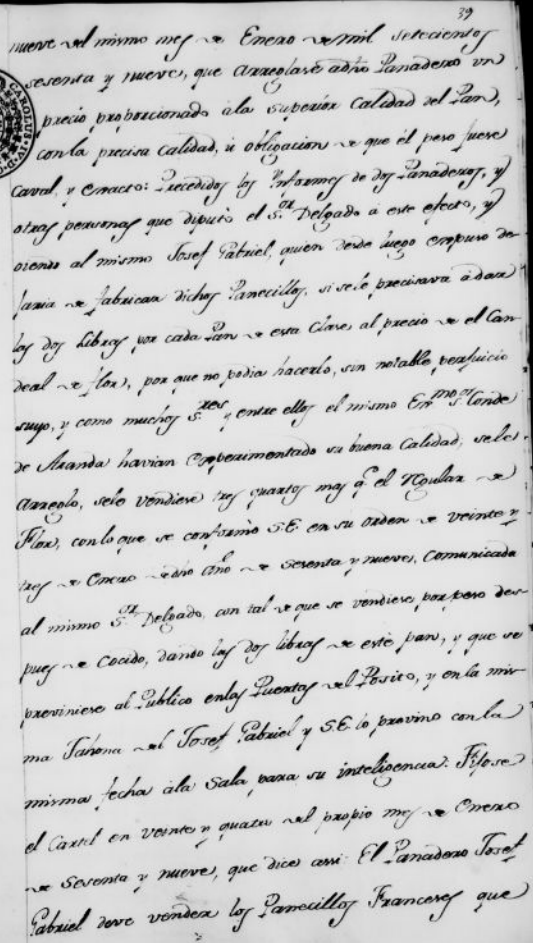 39
nueve del mismo mes de Enero de mil setecientos
sesenta y nueve, que arreglase a dho Panadero un
precio proporcionado â la superiór Calidad del Pan,
con la precisa Calidad, ú obligacion de que él peso fuese
Caval, y exacto: Precedidos los Ynformes de dos Panaderos, y
otras personas que diputò el S.or Delgado â este efecto, y
oiendo al mismo Josef Gabriel, quien desde luego expuso de-
jaria de fabricar dichos Panecillos, si se le precisava â dar
las dos Libras por cada Pan de esta Clase al precio de el Can-
deal de flor, por que no podia hacerlo, sin notable perjuicio
suyo, y como muchos S.res y entre ellos el mismo Exmo S.or Conde
de Aranda havian experimentado su buena Calidad, se le
arreglo, se le vendiese tres quartos mas q.e el regular de
Flor, con lo que se conformò S.E. en su orden de veinte y
tres de Enero de dho año de Sesenta y nueve, Comunicada
al mismo S.or Delgado, con tal de que se vendiese por peso des-
pues de Cocido, dando las dos libras de este pan, y que se
previniese al Publico en las Puertas del Posito, y en la mis-
ma Tahona del Josef Gabriel y S.E. lo previno con la
misma fecha â la Sala para su inteligencia: Fijose
el Cartel en veinte y quatro del propio mes de Enero
de Sesenta y nueve, que dice assi: El Panadero Josef
Gabriel deve vender los Panecillos Franceses que